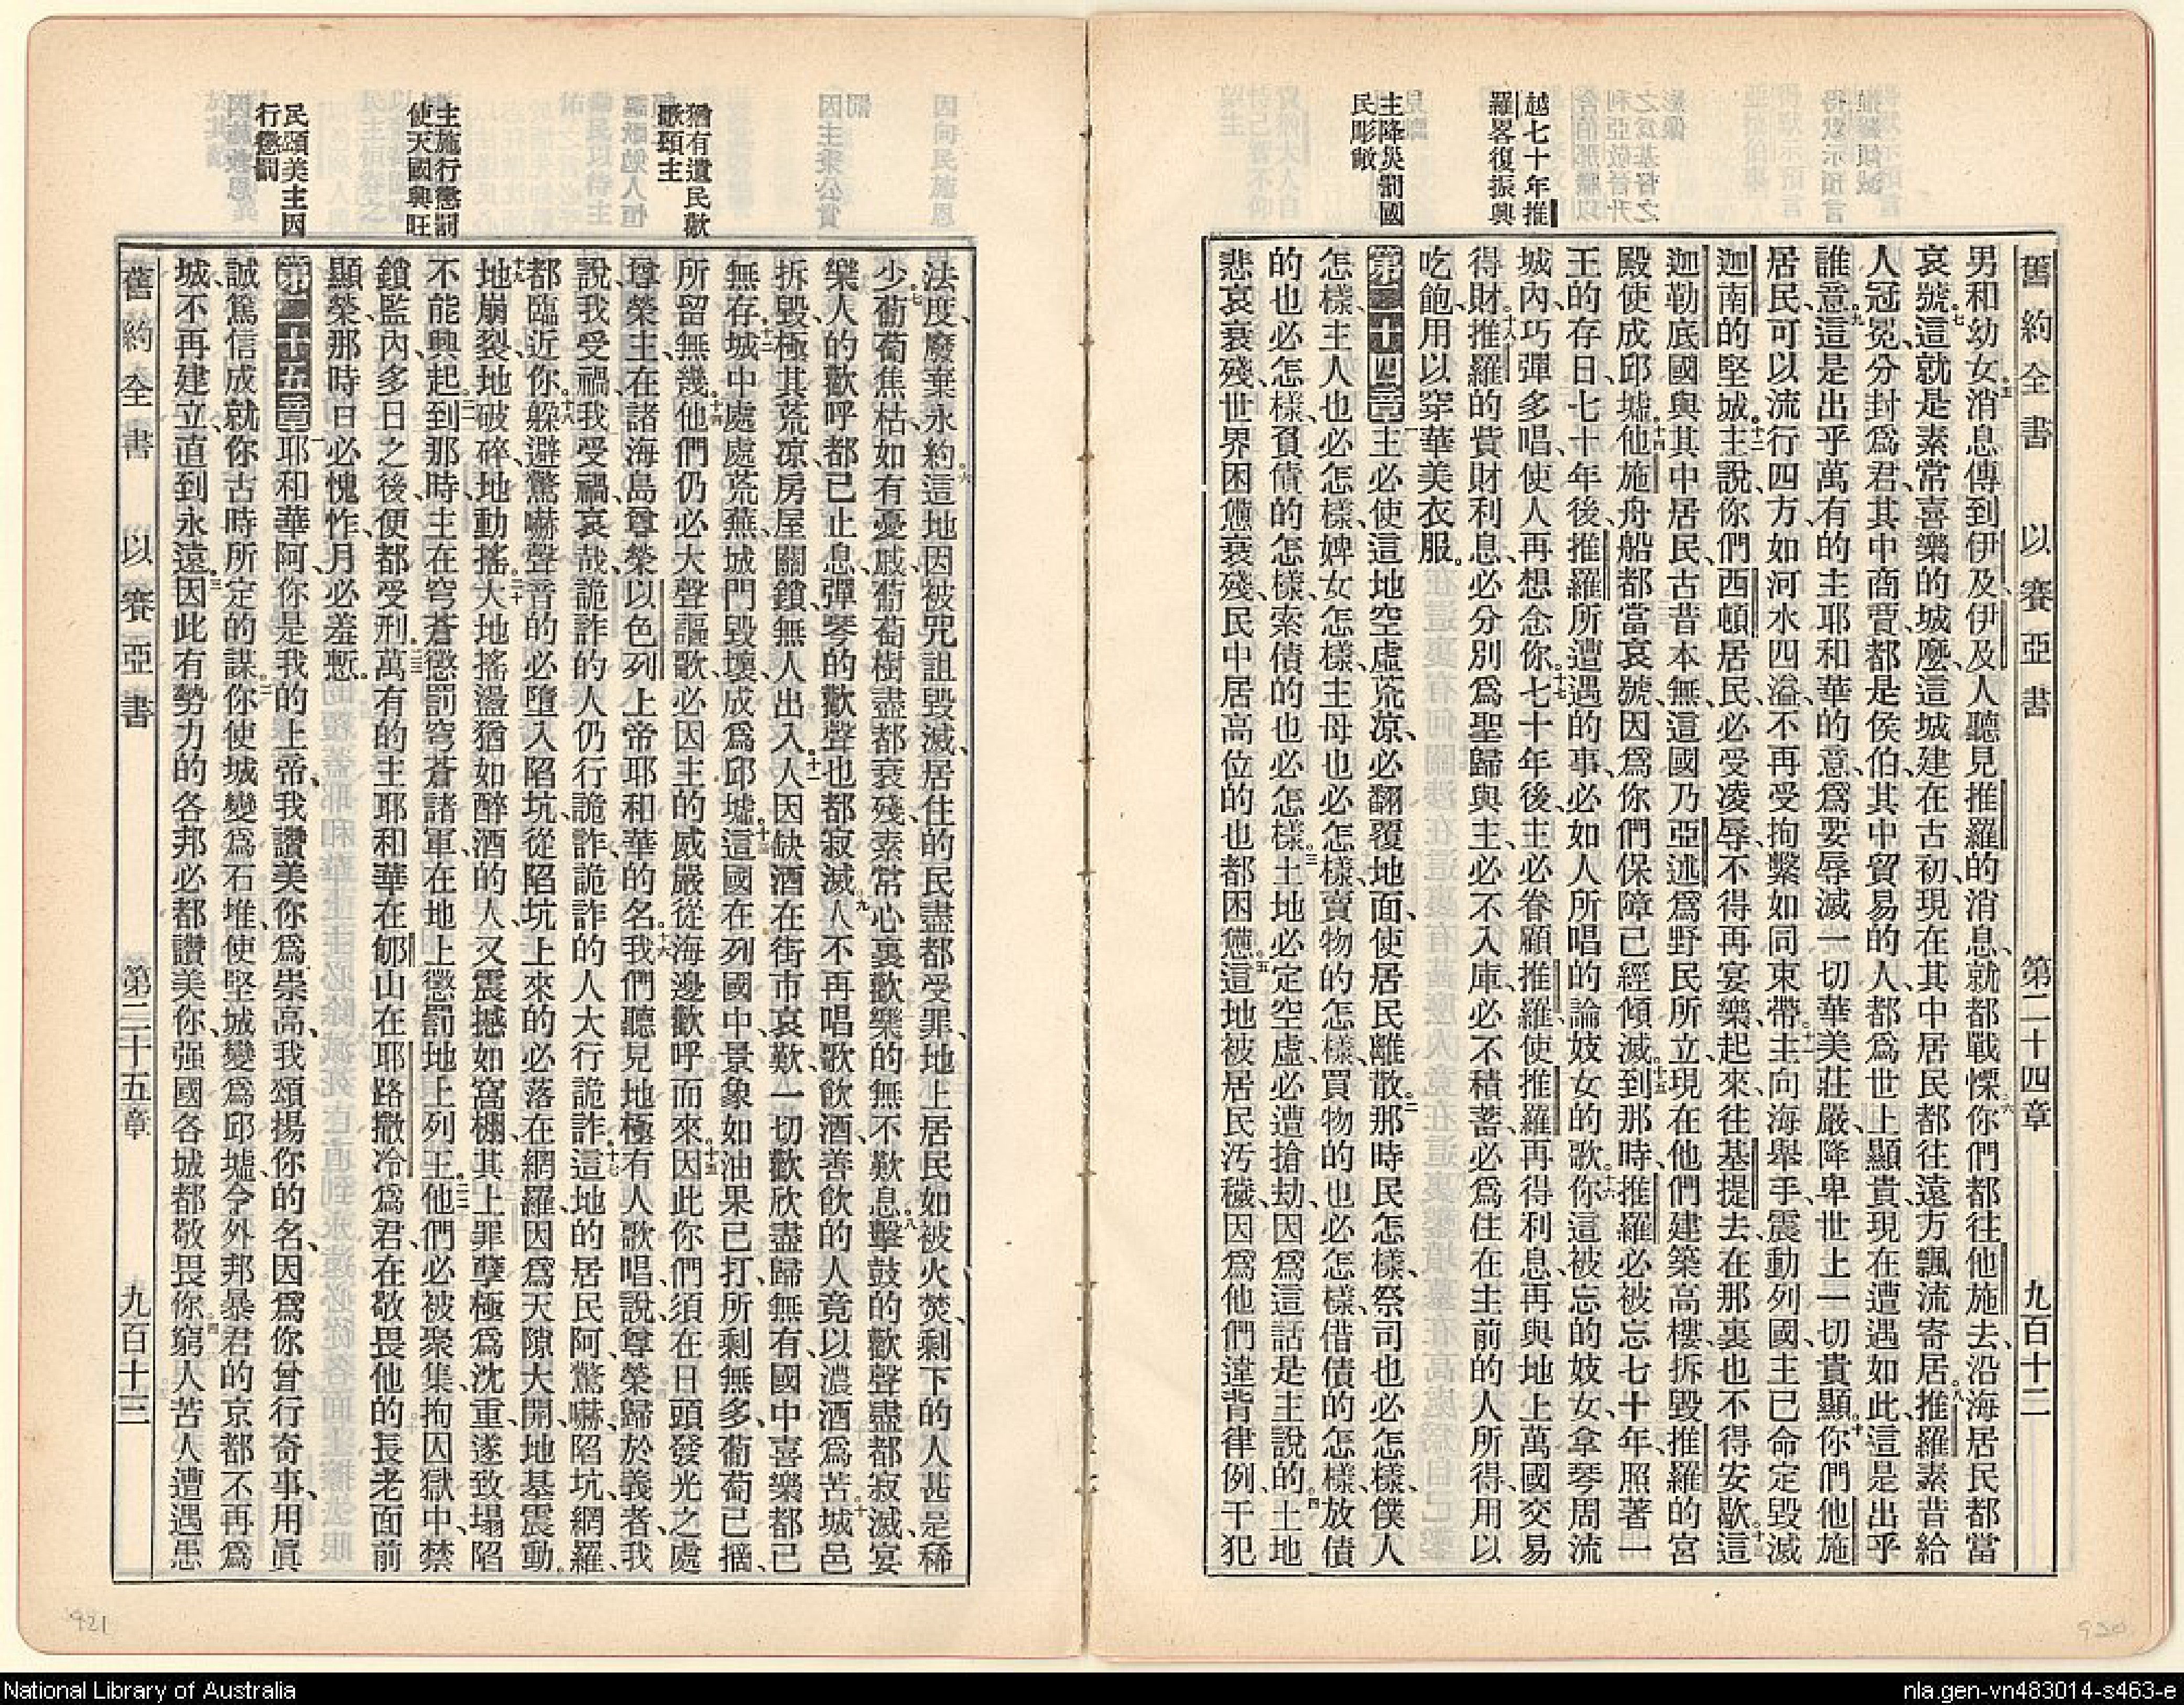 舊約全書 以賽亞書 第二十四章 九百十二
越七十年推
羅畧復振興
主降災罰國
民彫敝
男和幼女五消息傳到伊及伊及人聽見推羅的消息、就都戰慄六你們都往他施去、沿海居民都當
哀號七這就是素常喜樂的城麼、這城建在古初、現在其中居民都往遠方飄流寄居八推羅素昔給
人冠冕、分封爲君、其中商賈都是侯伯、其中貿易的人、都爲世上顯貴、現在遭遇如此、這是出乎
誰意九這是出乎萬有的主耶和華的意、爲要辱滅一切華美莊嚴、降卑世上一切貴顯十你們他施
居民、可以流行四方、如河水四溢、不再受拘繫如同束帶十一主向海舉手、震動列國、主已命定毀滅
迦南的堅城十二主說、你們西頓居民、必受凌辱、不得再宴樂、起來往基提去、在那裏也不得安歇十三這
迦勒底國與其中居民、古昔本無這國、乃亞述爲野民所立、現在他們建築高樓、拆毀推羅的宮
殿、使成邱墟十四他施舟船都當哀號、因爲你們保障已經傾滅十五到那時、推羅必被忘七十年、照著一
王的存日、七十年後、推羅所遭遇的事、必如人所唱的論妓女的歌十六你這被忘的妓女、拿琴周流
城內、巧彈多唱、使人再想念你十七七十年後、主必眷顧推羅、使推羅再得利息、再與地上萬國交易
得財十八推羅的貲財利息、必分別爲聖歸與主、必不入庫、必不積蓄、必爲住在主前的人所得、用以
吃飽、用以穿華美衣服。
第二十四章一主必使這地空虛荒涼、必翻覆地面、使居民離散二那時民怎樣、祭司也必怎樣、僕人
怎樣、主人也必怎樣、婢女怎樣、主母也必怎樣、賣物的怎樣、買物的也必怎樣、借債的怎樣、放債
的也必怎樣、負債的怎樣、索債的也必怎樣三土地必定空虛、必遭搶劫、因爲這話是主說的四土地
悲哀衰殘、世界困憊衰殘、民中居高位的也都困憊五這地被居民汚穢、因爲他們違背律例、干犯
猶有遺民歡
歌頌主
主施行懲罰
使天國興旺
民頌美主因
行懲罰
法度、廢棄永約六這地因被咒詛毀滅、居住的民盡都受罪、地上居民如被火焚、剩下的人甚是稀
少七葡萄焦枯、如有憂戚、葡萄樹盡都衰殘、素常心裏歡樂的無不歎息八擊鼓的歡聲盡都寂滅、宴
樂人的歡呼都已止息、彈琴的歡聲也都寂滅九人不再唱歌飲酒、善飲的人竟以濃酒爲苦十城邑
拆毀、極其荒凉、房屋關鎖、無人出入十一人因缺酒在街市哀歎、一切歡欣盡歸無有、國中喜樂都已
無存十二城中處處荒蕪、城門毀壞、成爲邱墟十三這國在列國中、景象如油果已打、所剩無多、葡萄已摘、
所留無幾十四他們仍必大聲謳歌、必因主的威嚴從海邊歡呼而來十五因此你們須在日頭發光之處
尊榮主、在諸海島尊榮以色列上帝耶和華的名十六我們聽見地極有人歌唱、說尊榮歸於義者、我
說我受禍、我受禍、哀哉、詭詐的人仍行詭詐、詭詐的人大行詭詐十七這地的居民阿、驚嚇、陷坑、網羅、
都臨近你十八躲避驚嚇聲音的、必墮入陷坑、從陷坑上來的、必落在網羅、因爲天隙大開、地基震動。
十九地崩裂、地破碎、地動搖二十大地搖盪、猶如醉酒的人、又震撼如窩棚、其上罪孽極爲沈重、遂致塌陷
不能興起二一到那時、主在穹蒼懲罰穹蒼諸軍、在地上懲罰地上列王二二他們必被聚集、拘囚獄中、禁
鎖監內、多日之後、便都受刑二三萬有的主耶和華在郇山在耶路撒冷爲君、在敬畏他的長老面前
顯榮、那時日必愧怍、月必羞慙。
第二十五章一耶和華阿、你是我的上帝、我讚美你爲崇高、我頌揚你的名、因爲你曾行奇事、用眞
誠篤信成就你古時所定的謀二你使城變爲石堆、使堅城變爲邱墟、令外邦暴君的京都不再爲
城、不再建立、直到永遠三因此有勢力的各邦必都讚美你、强國各城都敬畏你四窮人苦人遭遇患
舊約全書 以賽亞書 第二十五章 九百十三
921
920
National Library of Australia
nla.gen-vn483014-s463-e